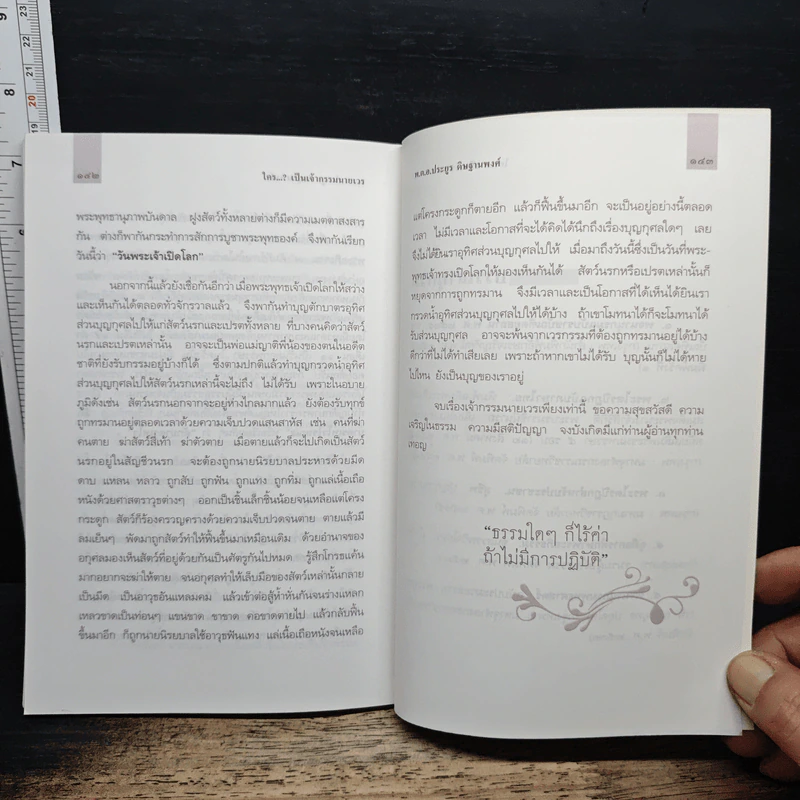 ๑๘๒
ใคร...? เป็นเจ้ากรรมนายเวร
พระพุทธานุภาพบันดาล ฝูงสัตว์ทั้งหลายต่างก็มีความเมตตาสงสาร
กัน ต่างก็พากันกระทำการสักการบูชาพระพุทธองค์ จึงพากันเรียก
วันนี้ว่า "วันพระเจ้าเปิดโลก"
นอกจากนี้แล้วยังเชื่อกันอีกว่า เมื่อพระพุทธเจ้าเปิดโลกให้สว่าง
และเห็นกันได้ตลอดทั่วจักรวาลแล้ว จึงพากันทำบุญตักบาตรอุทิศ
ส่วนบุญกุศลไปให้แก่สัตว์นรกและเปรตทั้งหลาย ที่บางคนคิดว่าสัตว์
นรกและเปรตเหล่านั้น อาจจะเป็นพ่อแม่ญาติพี่น้องของตนในอดีต
ชาติที่ยังรับกรรมอยู่บ้างก็ได้ ซึ่งตามปกติแล้วทำบุญกรวดน้ำอุทิศ
ส่วนบุญกุศลไปให้สัตว์นรกเหล่านี้จะไม่ถึง ไม่ได้รับ เพราะในอบาย
ภูมิดังเช่น สัตว์นรกนอกจากจะอยู่ห่างไกลมากแล้ว ยังต้องรับทุกข์
ถูกทรมานอยู่ตลอดเวลาด้วยความเจ็บปวดแสนสาหัส เช่น คนที่ฆ่า
คนตาย ฆ่าสัตว์สี่เท้า ฆ่าตัวตาย เมื่อตายแล้วก็จะไปเกิดเป็นสัตว์
นรกอยู่ในสัญชีวนรก จะต้องถูกนายนิรยบาลประหารด้วยมีด
ดาบ แหลน หลาว ถูกสับ ถูกฟัน ถูกแทง ถูกทิ่ม ถูกแล่เนื้อเถือ
หนังด้วยศาสตราวุธต่างๆ ออกเป็นชิ้นเล็กชิ้นน้อยจนเหลือแต่โครง
กระดูก สัตว์ก็ร้องครวญครางด้วยความเจ็บปวดจนตาย ตายแล้วมี
ลมเย็นๆ พัดมาถูกสัตว์ทำให้ฟื้นขึ้นมาเหมือนเดิม ด้วยอำนาจของ
อกุศลมองเห็นสัตว์ที่อยู่ด้วยกันเป็นศัตรูกันไปหมด รู้สึกโกรธแค้น
มากอยากจะฆ่าให้ตาย จนอกุศลทำให้เล็บมือของสัตว์เหล่านั้นกลาย
เป็นมีด เป็นอาวุธอันแหลมคม แล้วเข้าต่อสู้ห้ำหั่นกันจนร่างแหลก
เหลวขาดเป็นท่อนๆ แขนขาด ขาขาด คอขาดตายไป แล้วกลับฟื้น
ขึ้นมาอีก ก็ถูกนายนิรยบาลใช้อาวุธฟันแทง แล่เนื้อเถือหนังจนเหลือ
๑๘๓
พ.ต.อ.ประยูร ดิษฐานพงศ์
แต่โครงกระดูกก็ตายอีก แล้วก็ฟื้นขึ้นมาอีก จะเป็นอยู่อย่างนี้ตลอด
เวลา ไม่มีเวลาและโอกาสที่จะได้คิดได้นึกถึงเรื่องบุญกุศลใดๆ เลย
จึงไม่ได้ยินเราอุทิศส่วนบุญกุศลไปให้ เมื่อมาถึงวันนี้ซึ่งเป็นวันที่พระ-
พุทธเจ้าทรงเปิดโลกให้มองเห็นกันได้ สัตว์นรกหรือเปรตเหล่านั้นก็
หยุดจากการถูกทรมาน จึงมีเวลาและเป็นโอกาสที่ได้เห็นได้ยินเรา
กรวดน้ำอุทิศส่วนบุญกุศลไปให้ได้บ้าง ถ้าเขาโมทนาได้ก็จะโมทนาได้
รับส่วนบุญกุศล อาจจะพ้นจากเวรกรรมที่ต้องถูกทรมานอยู่ได้บ้าง
ดีกว่าที่ไม่ทำเสียเลย เพราะถ้าหากเขาไม่ได้รับ บุญนั้นก็ไม่ได้หาย
ไปไหน ยังเป็นบุญของเราอยู่
จบเรื่องเจ้ากรรมนายเวรเพียงเท่านี้ ขอความสุขสวัสดี ความ
เจริญในธรรม ความมีสติปัญญา จงบังเกิดมีแก่ท่านผู้อ่านทุกท่าน
เทอญ
"ธรรมใดๆ ก็ไร้ค่า
ถ้าไม่มีการปฏิบัติ"